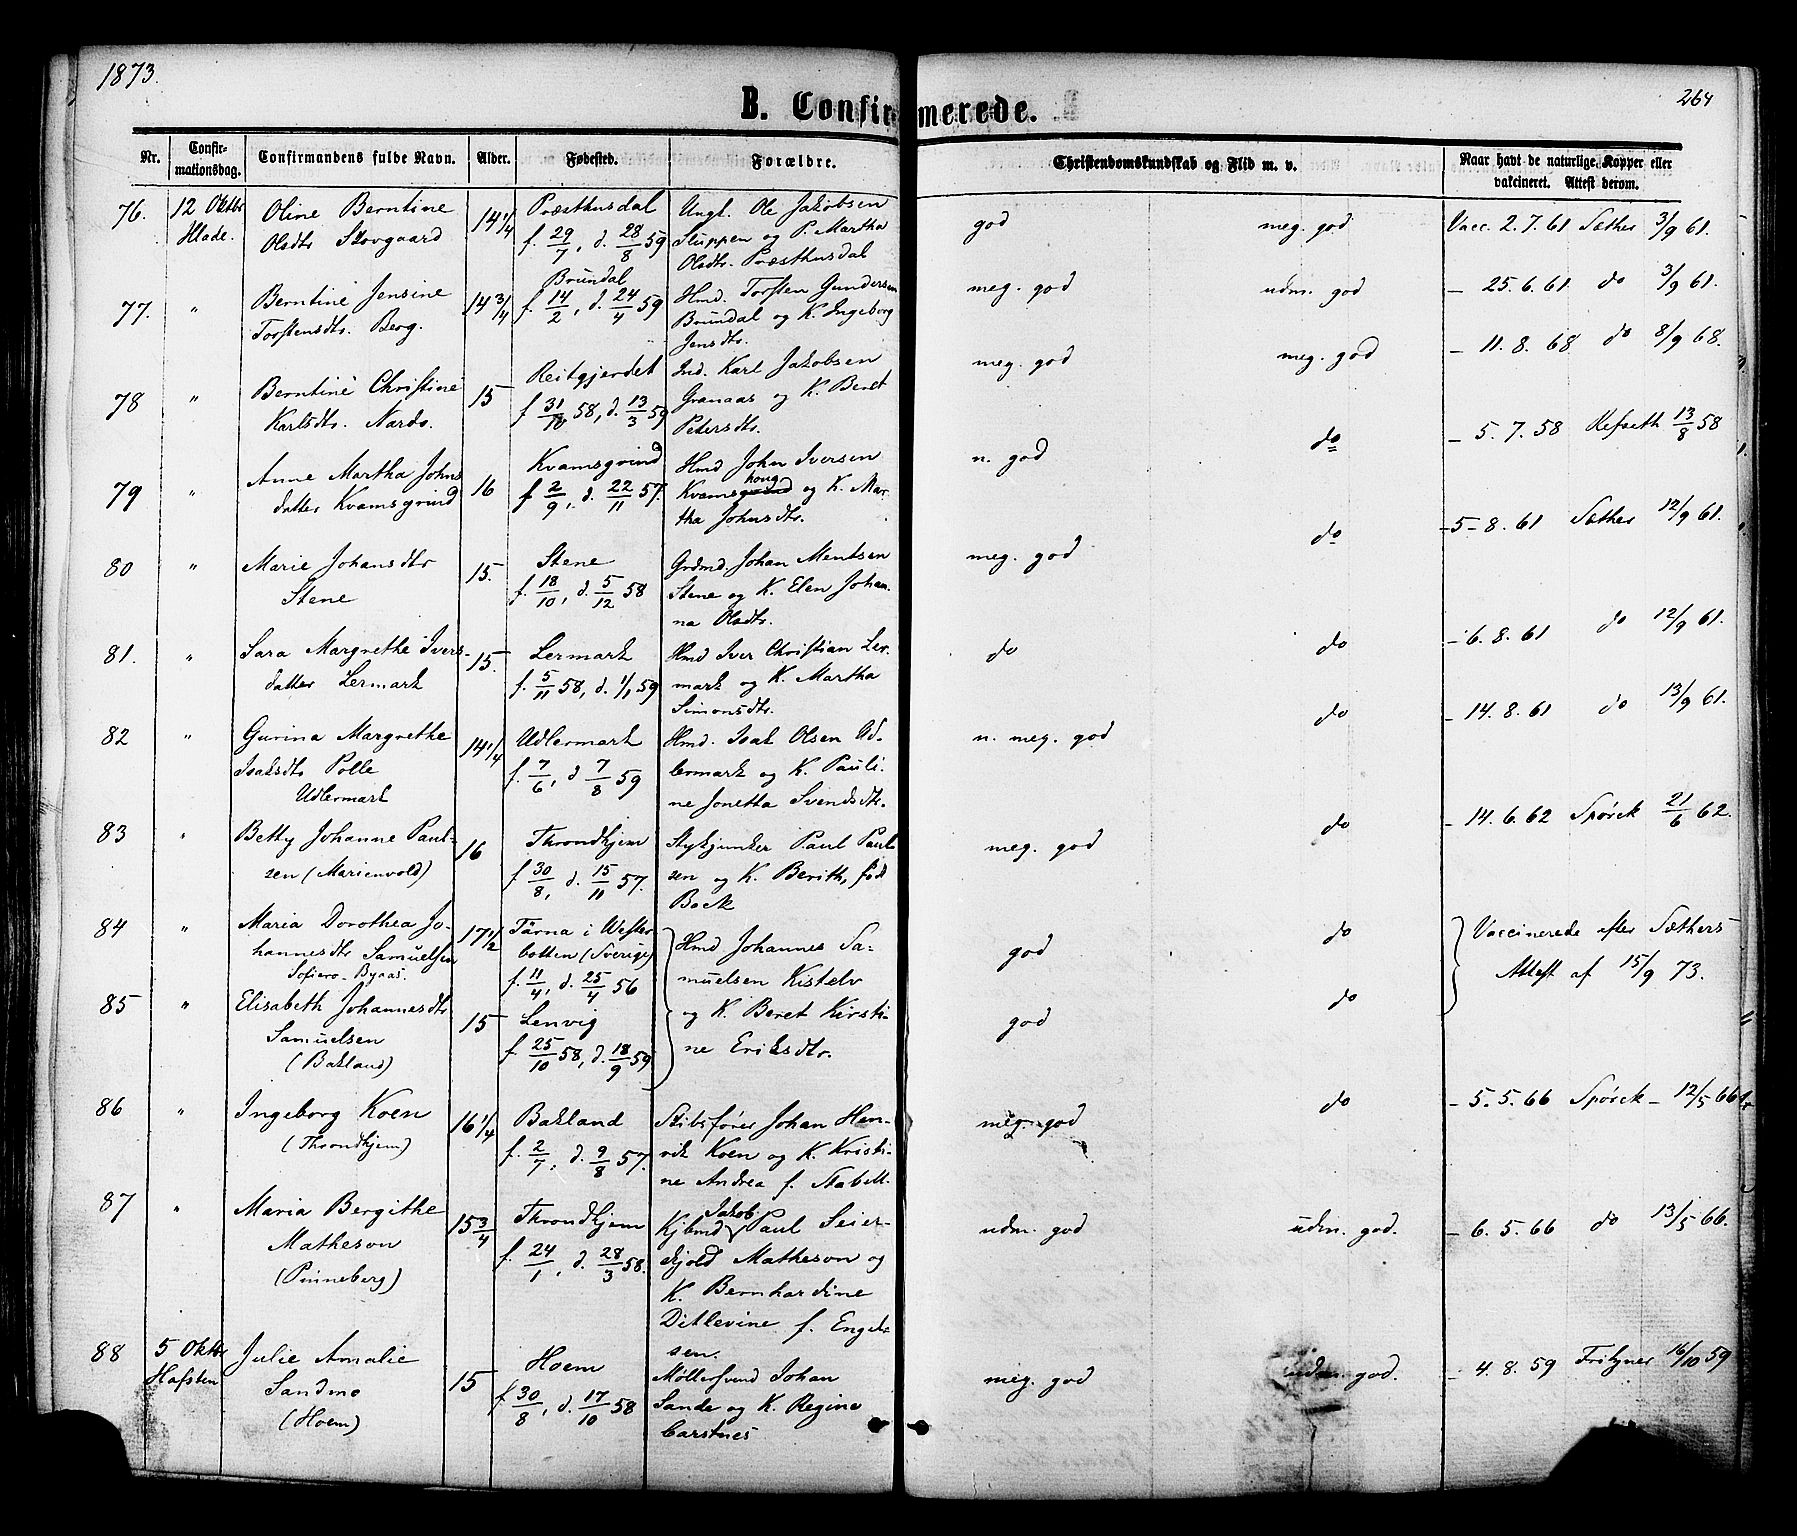 1873.
264
B. Confirmerede.
Nr. Confirmationsdag. Confirmandens fulde Navn. Alder. Fødested. Forældre. Christendomskundskab og Flid m. v. Naar havt de naturlige Kopper eller vakcineret. Attest derom.
76. 12 Oktbr Oline Berntine 14 1/4 Præsthusdal Ungk. Ole Jakobsen god meg. god Vacc. 2.7.61 Sæther 3/9 61.
Hlade. Olsdtr Skovgaard f. 29/7, d. 28/8 59 Sluppen og P. Martha
Olsdtr. Præsthusdal
77. " Berntine Jensine 14 3/4 Brundal Hmd. Torsten Gundersen meg. god udm. god - 25.6.61 do 3/9 61.
Torstensdtr. Berg. f. 14/2, d. 24/4 59 Brundal og K. Ingeborg
Jensdtr.
78 " Berntine Christine 15 Reitgjerdet Ind. Karl Jakobsen meg. god meg. god - 11.8.68 do 8/9 68.
Karlsdtr. Nardo. f. 31/10 58, d. 13/3 59 Granaas og K. Beret
Petersdtr.
79 " Anne Martha Johns 16 Kvamsgrind Hmd John Iversen n. god do - 5.7.58 Refseth 13/8 58
datter Kvamsgrind f. 2/9, d. 22/11 57. Kvamsgrind houg og K. Mar-
tha Johnsdtr.
80 " Marie Johansdtr 15. Stene Grdmd. Johan Mentsen meg. god do - 5-8.61 Sæther 12/9 61.
Stene f. 18/10, d. 5/12 58 Stene og K. Elen Johan-
na Olsdtr.
81. " Sara Margrethe Ivers- 15. Lermark Hmd Iver Christian Ler- do do - 6.8.61 do 12/9 61.
datter Lermark f. 5/11 58, d. 1/1 59 mark og K. Martha
Simonsdtr.
82 " Gurina Margrethe 14 1/4 Udlermark Hmd. Isak Olsen Ud- n. meg. god do - 14.8.61 do 13/9 61.
Isaksdtr Polle f. 7/6, d 7/8 59 lermark og K. Pauli-
Udlermark ne Jonetta Svendsdtr.
83 " Betty Johanne Paul- 16 Throndhjem Stykjunker Paul Paul- meg. god do - 14.6.62 Spørck 21/6 62.
sen (Marienvold) f 30/8, d. 15/11 57. sen og K. Berith, fød
Bock
84 " Maria Dorothea Jo- 17 1/2 Tärna i Wester Hmd Johannes Sa- god do Vaccinerede efter Sæthers
hannesdtr Samuelsen botten (Sverige) muelsen Kistelv Attest af 15/9 73.
Sofiero - Byaas. f. 11/4, d. 25/4 56
85 " Elisabeth Johannesdtr 15 Lenvig og K. Beret Kirsti- god do
Samuelsen f. 25/10 58, d. 18/9 59 ne Eriksdtr.
(Bakland)
86 " Ingeborg Koen 16 1/4 Bakland Skibsfører Johan Hen- meg. god do - 5.5.66 Spørck - 12/5 66
(Throndhjem) f. 2/7, d. 9/8 57. rik Koen og K. Kristi-
ne Andrea f. Stabell.
87 " Maria Bergithe 15 3/4 Throndhjem Kjbmd Jakob Paul Seier- udm. god udm. god. - 6.5.66 do 13/5 66.
Matheson f. 24/1, d. 28/3 58. skjold Matheson og
(Pinneberg) K. Bernhardine
Ditlevine f. Engel-
sen.
88 5 Oktbr Julie Amalie 15 Hoem Møllersvend Johan meg. god udm. god. - 4.8.59 Fritzner 16/10 59
Hafsten Sandmo f. 30/8, d. 17/10 58 Sande og K. Regine
(Hoem) Carstnes